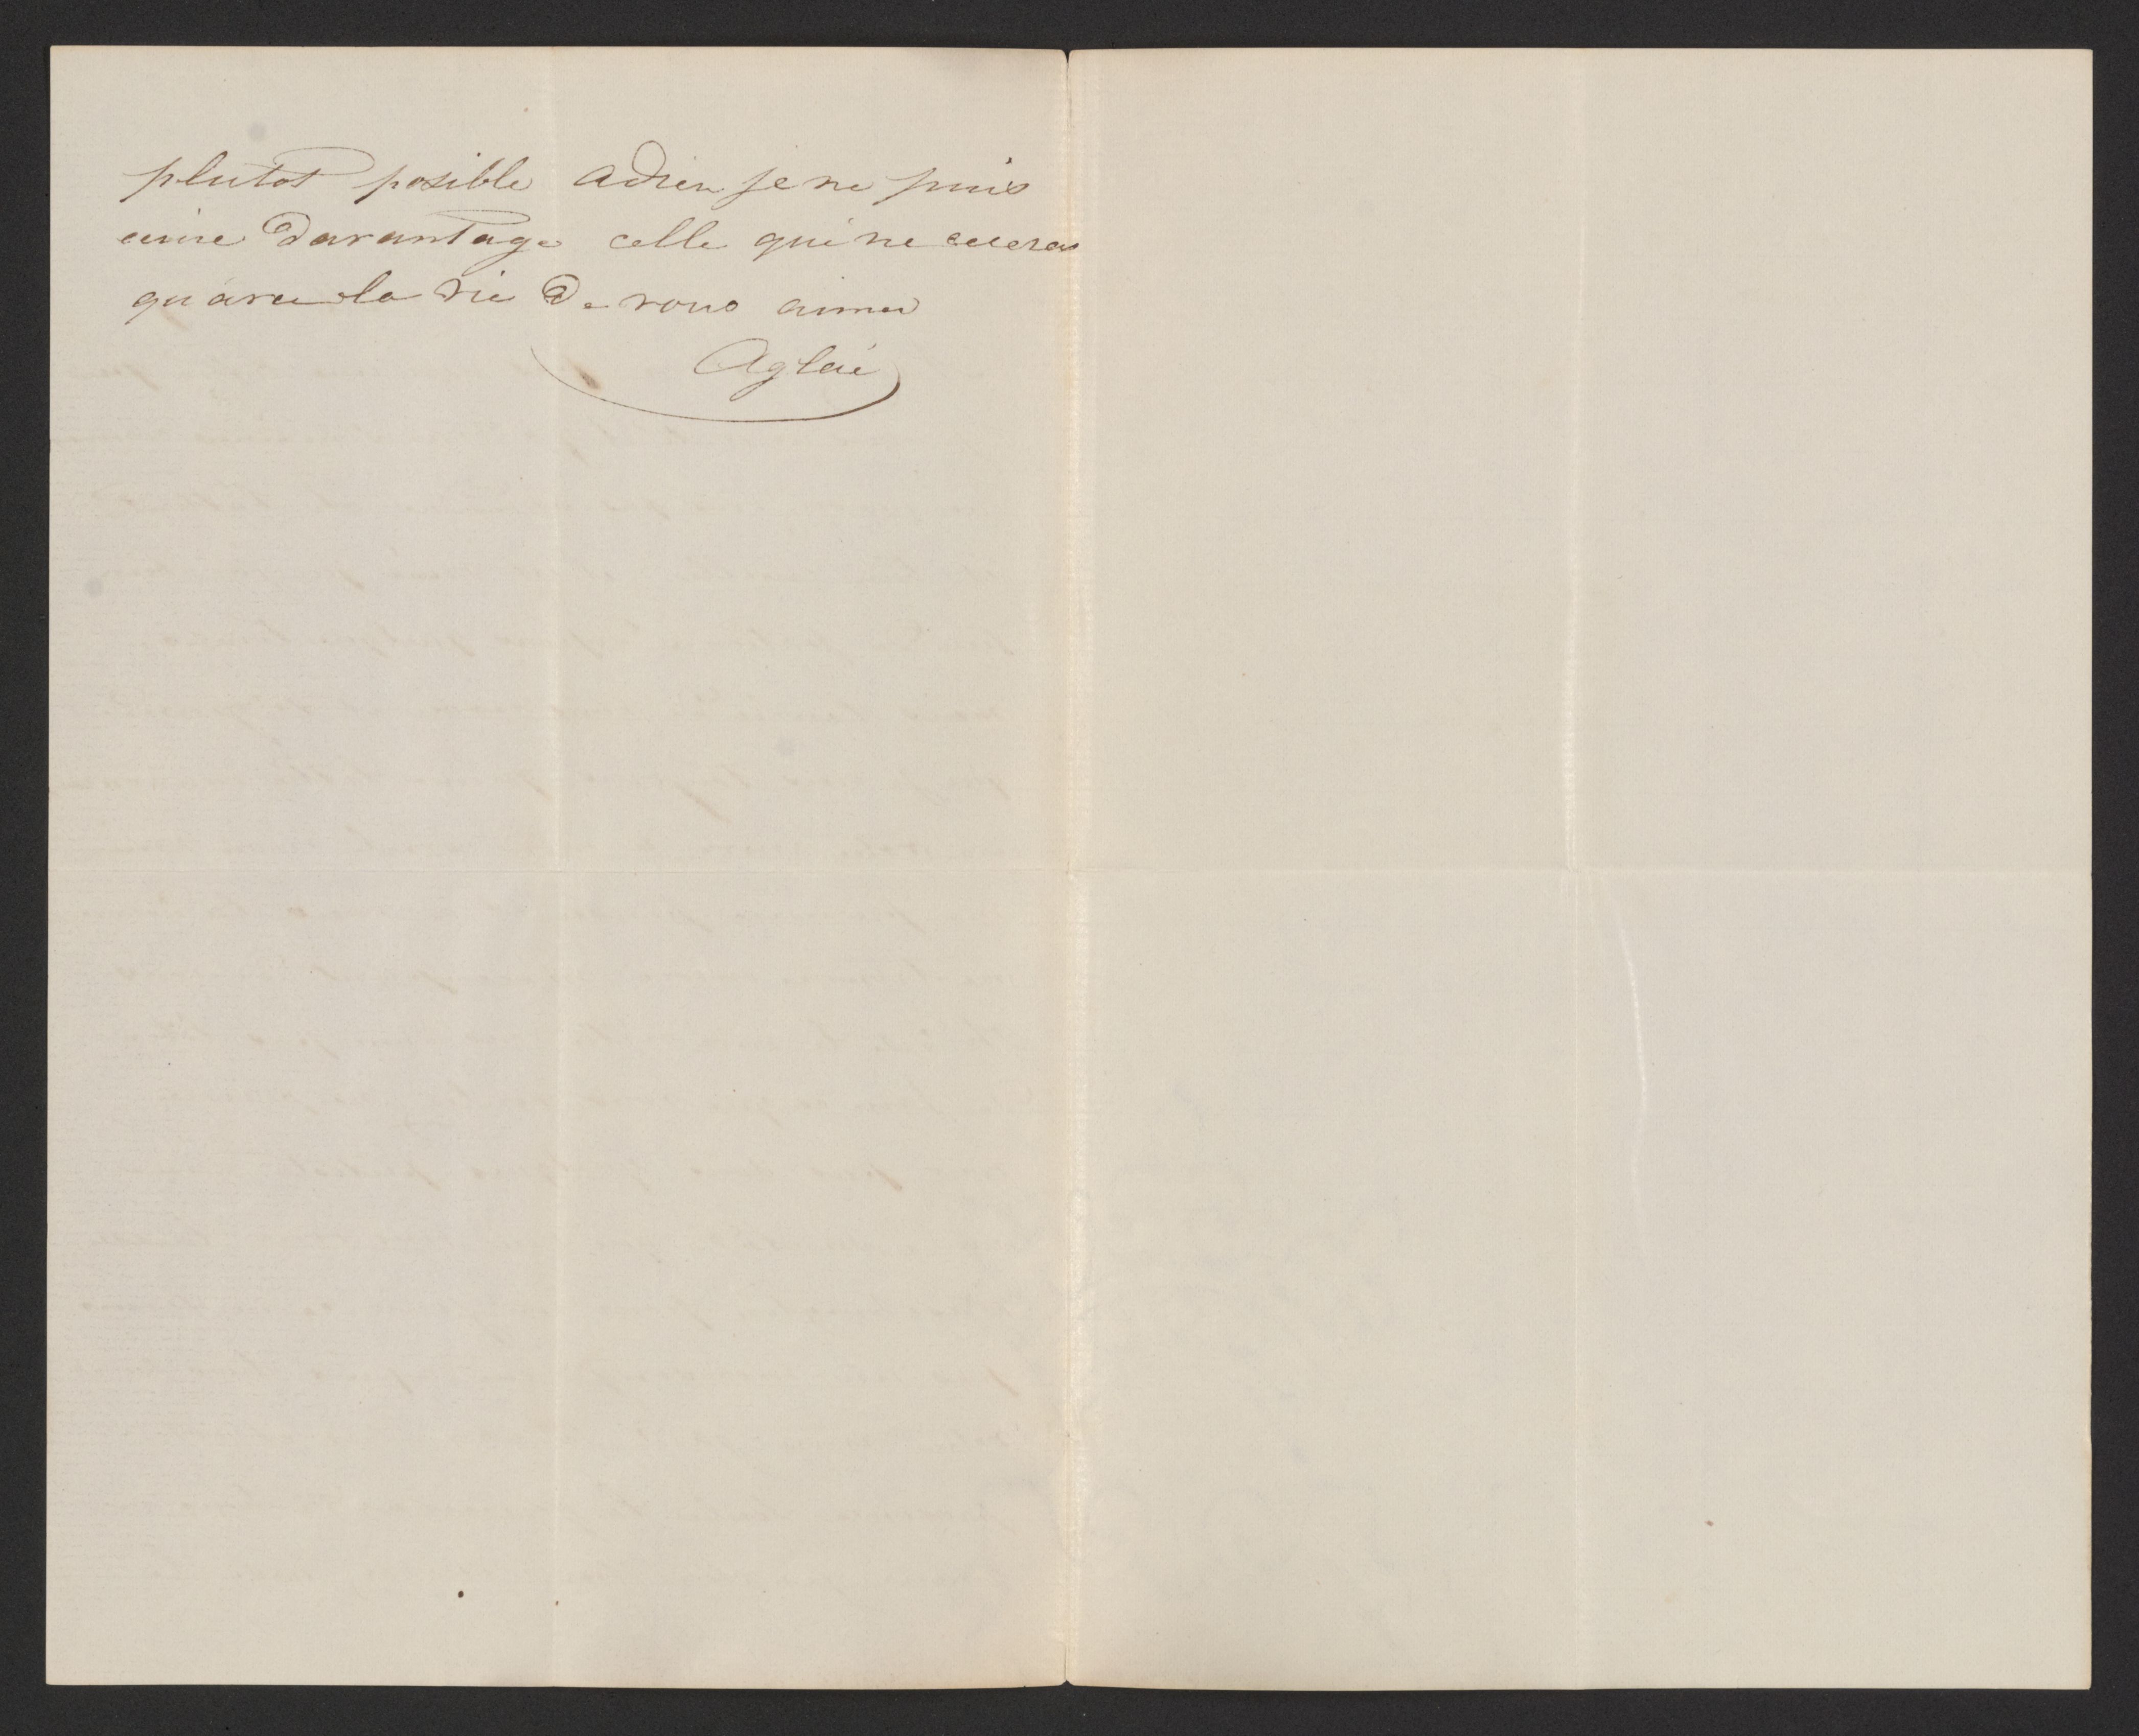 plutot posible adieu je ne puis
écrire davantage celle qui ne cessera
qu'avec la vie de vous aimer
Aglaé